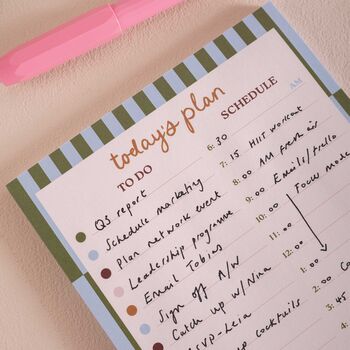 today's plan
TO DO
Q3 report
Schedule marketing
Plan network event
Leadership programme
Email Tobias
Sign off A/W
Catch up w/ Nina
SVP-Leia
up cocktails
SCHEDULE
AM
6: 30
7: 15 HIIT workout
8: 00 AM fresh air
9: 00 Emails/trello
10: 00 Focus mode
11: 00
12: 00
1: 00
2: 00
3: 45